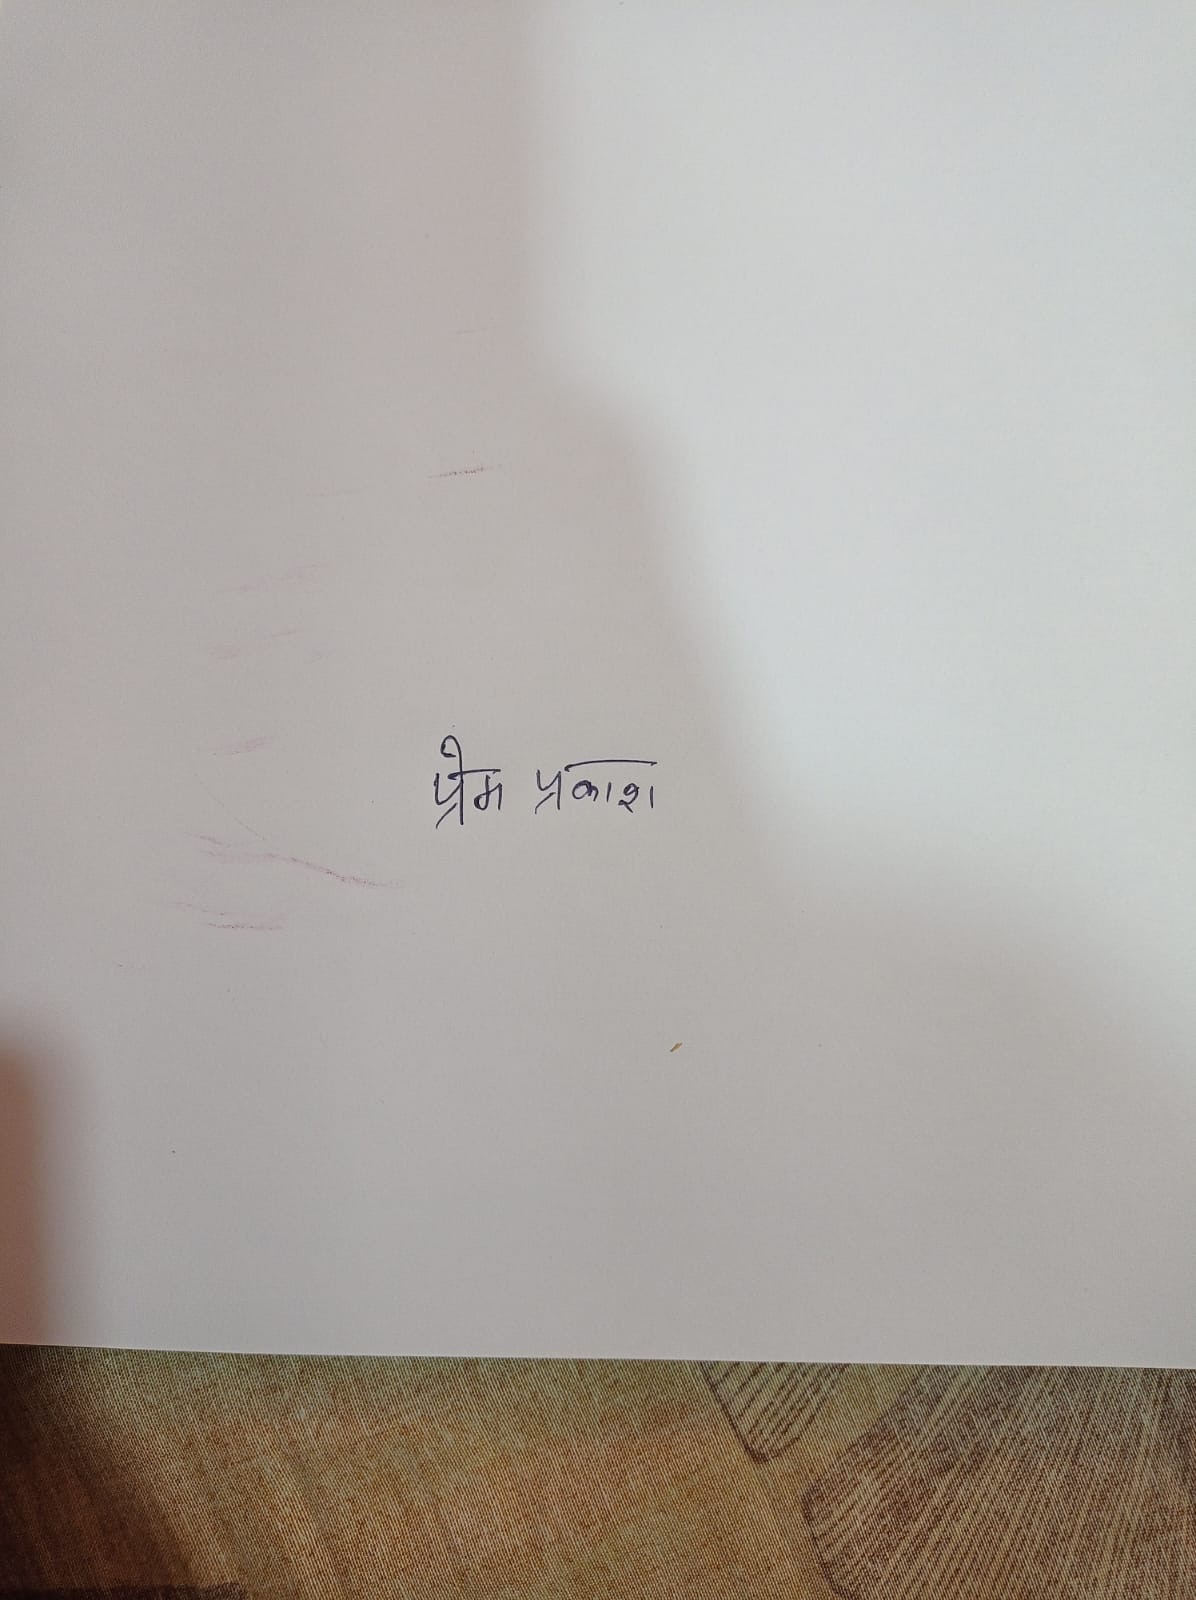 प्रेम प्रकाश